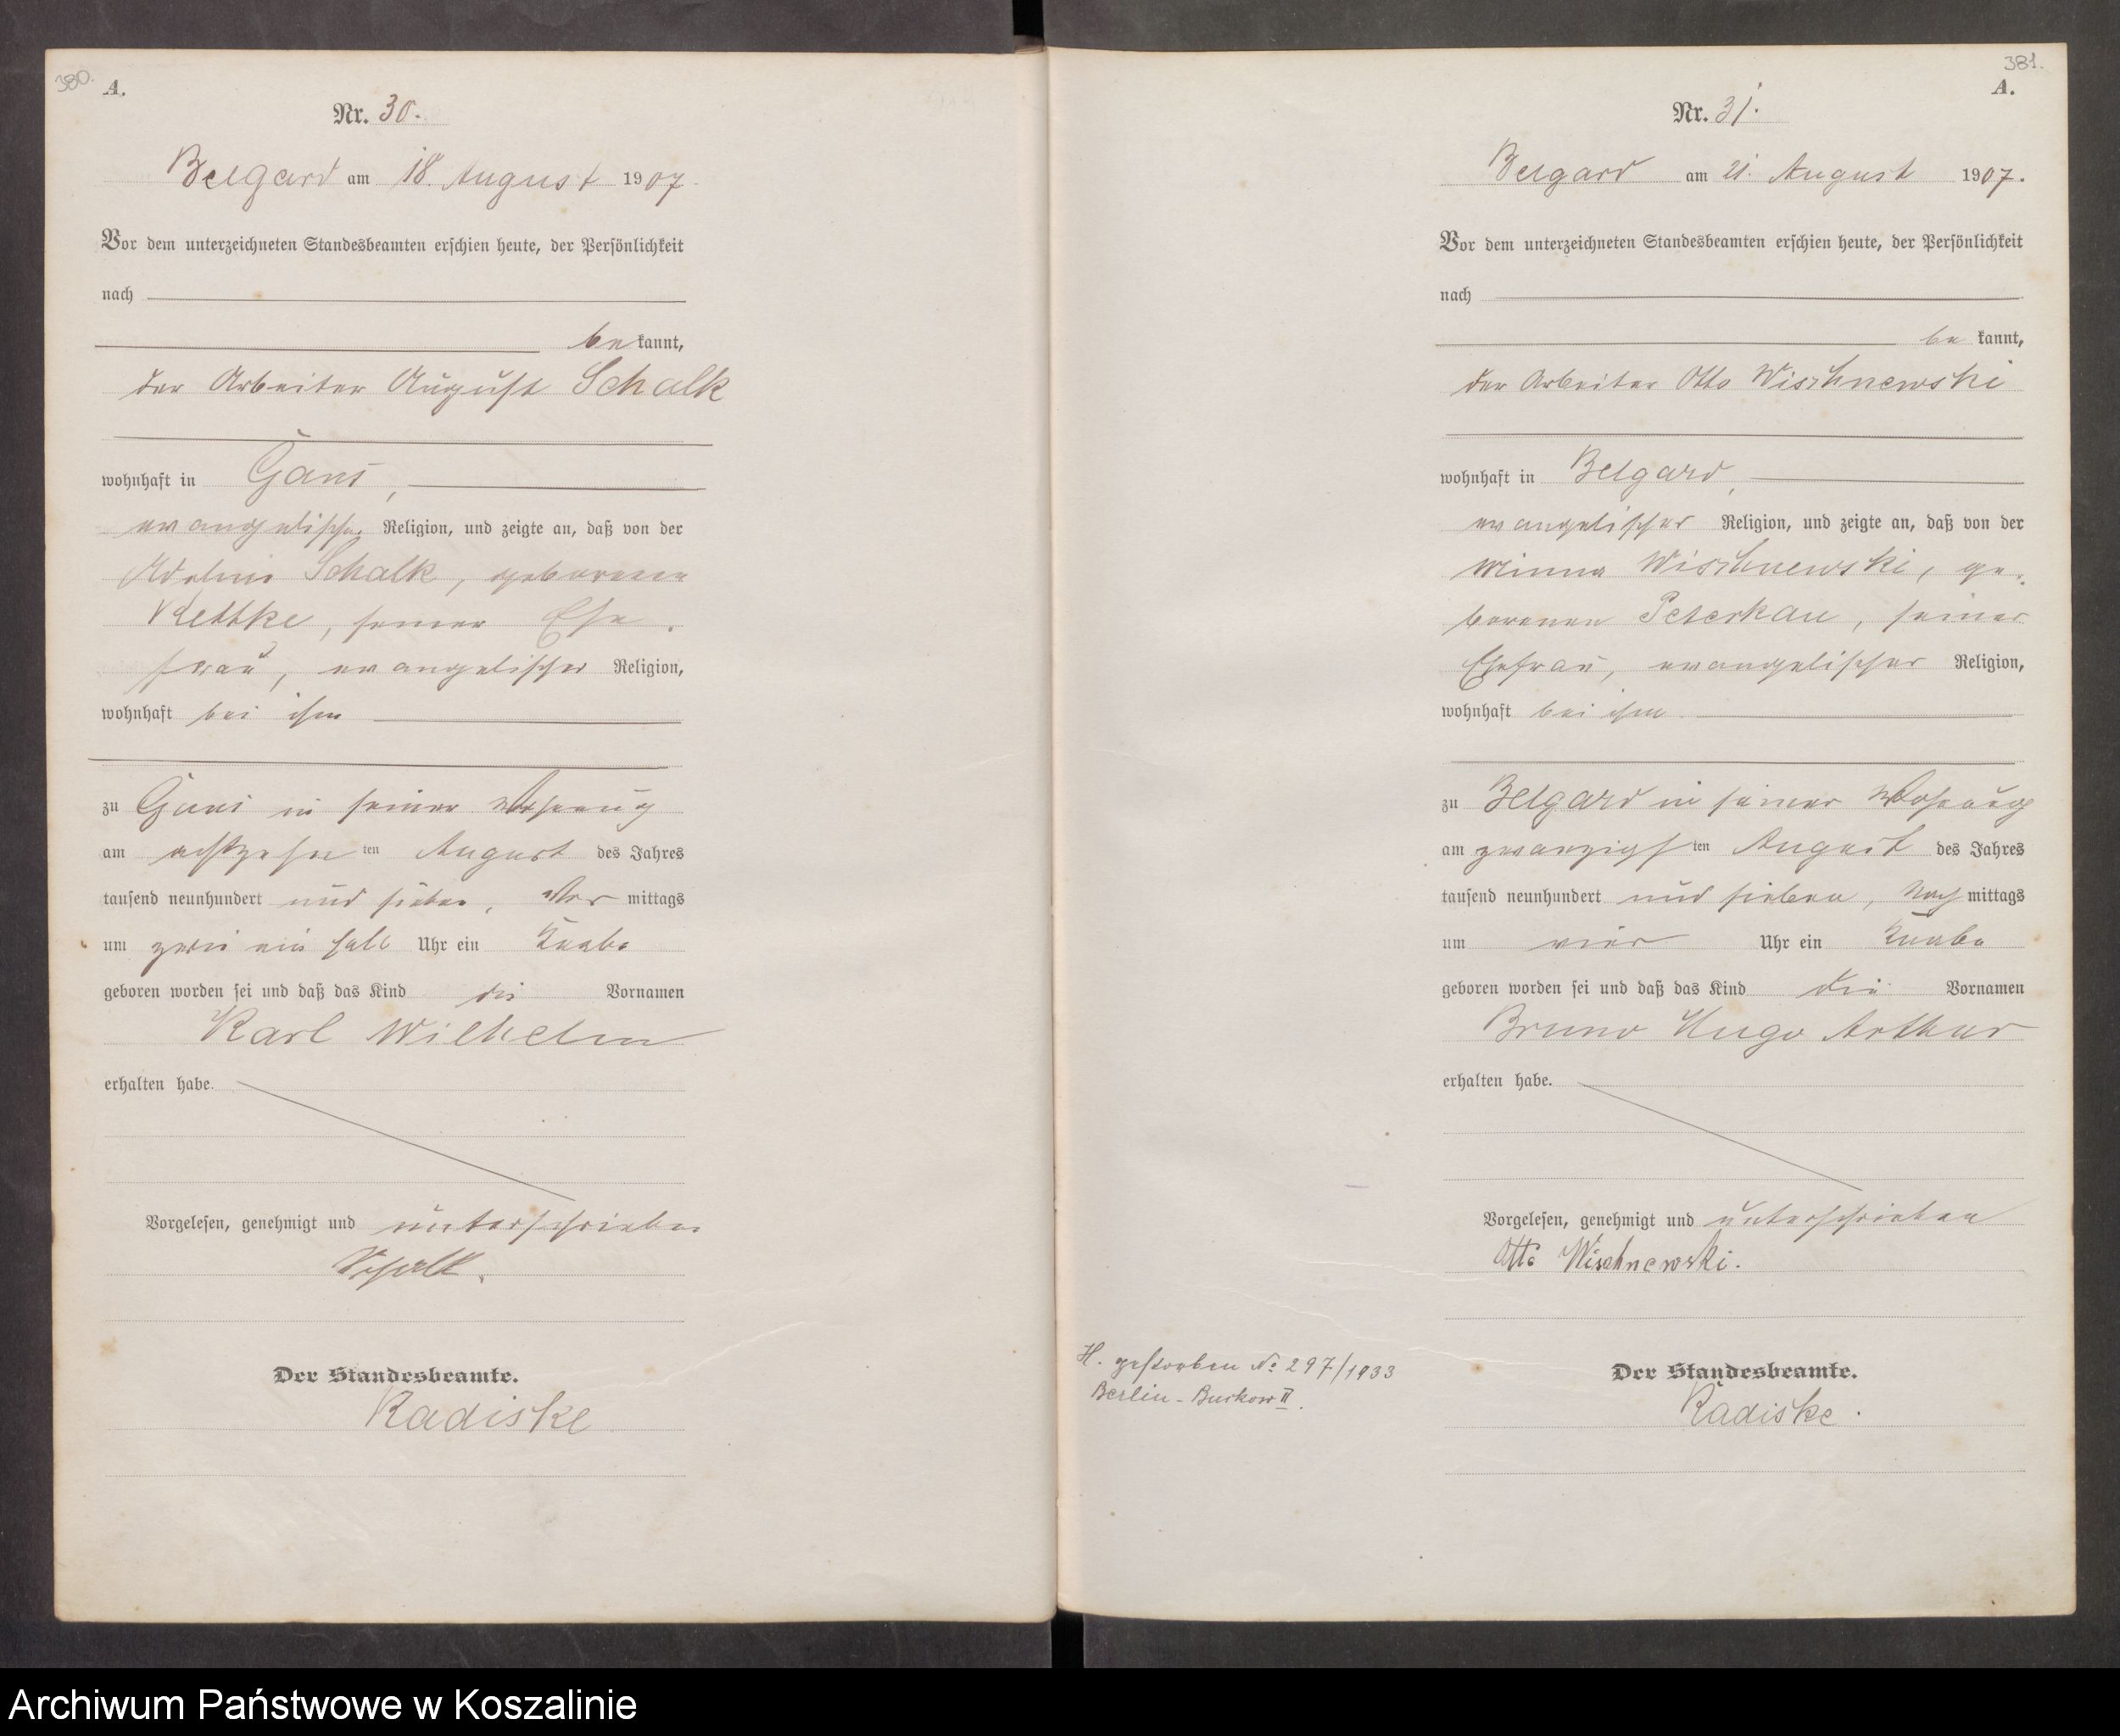 380.
A.
Nr. 30.
Belgard am 18. August 1907.
Vor dem unterzeichneten Standesbeamten erschien heute, der Persönlichkeit
nach
be kannt,
der Arbeiter August Schalk
wohnhaft in Gans,
evangelischer Religion, und zeigte an, daß von der
Schalk, geborenen
seiner Ehe-
frau, evangelischer Religion,
wohnhaft bei ihm
zu Gans in seiner Wohnung
am achtzehn ten August des Jahres
tausend neunhundert und sieben, Vor mittags
um zwei ein halb Uhr ein Knabe
geboren worden sei und daß das Kind die Vornamen
Karl Wilhelm
erhalten habe.
Vorgelesen, genehmigt und unterschrieben
Schalk.
Der Standesbeamte.
Radiske
381.
A.
Nr. 31.
Belgard am 21. August 1907.
Vor dem unterzeichneten Standesbeamten erschien heute, der Persönlichkeit
nach
be kannt,
der Arbeiter Otto Wischnewski
wohnhaft in Belgard,
evangelischer Religion, und zeigte an, daß von der
Minna Wischnewski, ge-
borenen Peterkau, seiner
Ehefrau, evangelischer Religion,
wohnhaft bei ihm
zu Belgard in seiner Wohnung
am zwanzigs ten August des Jahres
tausend neunhundert und sieben, Nach mittags
um vier Uhr ein Knabe
geboren worden sei und daß das Kind die Vornamen
Bruno Hugo Arthur
erhalten habe.
Vorgelesen, genehmigt und unterschrieben
Otto Wischnewski.
H. gestorben No 297/1933
Berlin-Buckow II.
Der Standesbeamte.
Radiske.
Archiwum Państwowe w Koszalinie